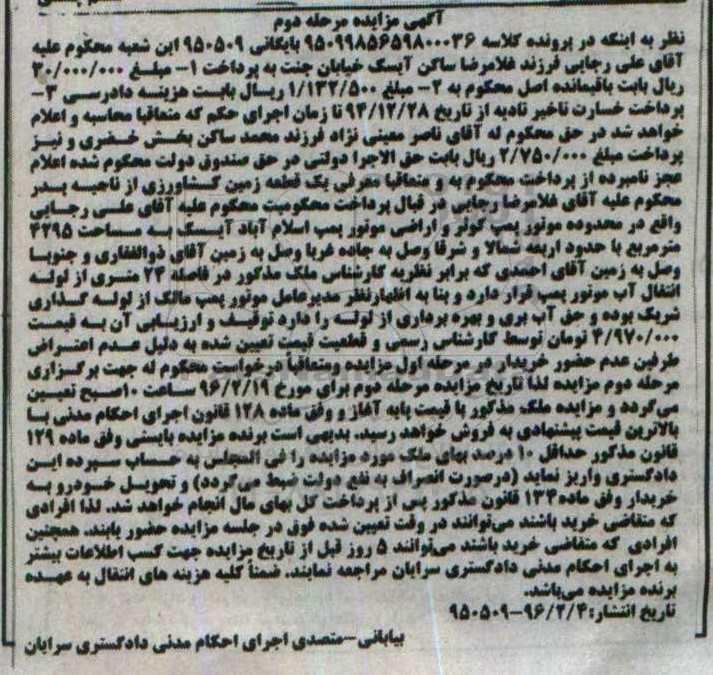 آگهی مزایده مرحله دوم
نظر به اینکه در پرونده کلاسه ۹۵۰۹۹۸۵۶۵۹۸۰۰۰۳۶ بایگانی ۹۵۰۵۰۹ این شعبه محکوم علیه
آقای علی رجایی فرزند غلامرضا ساکن آیسک خیابان جنت به پرداخت ۱- مبلغ ۲۰/۰۰۰/۰۰۰
ریال بابت باقیمانده اصل محکوم به ۲- مبلغ ۱/۱۳۲/۵۰۰ ریال بابت هزینه دادرسی ۳-
پرداخت خسارت تاخیر تادیه از تاریخ ۹۴/۱۲/۲۸ تا زمان اجرای حکم که متعاقبا محاسبه و اعلام
خواهد شد در حق محکوم له آقای ناصر معینی نژاد فرزند محمد ساکن بخش خضری و نیز
پرداخت مبلغ ۲/۷۵۰/۰۰۰ ریال بابت حق الاجرا دولتی در حق صندوق دولت محکوم شده اعلام
عجز نامبرده از پرداخت محکوم به و متعاقبا معرفی یک قطعه زمین کشاورزی از ناحیه پدر
محکوم علیه آقای غلامرضا رجایی در قبال پرداخت محکومیت محکوم علیه آقای علی رجایی
واقع در محدوده موتور پمپ کوثر و اراضی موتور پمپ اسلام آباد آیسک به مساحت ۴۲۹۵
مترمربع با حدود اربعه شمالا و شرقا وصل به جاده غربا وصل به زمین آقای ذوالفقاری و جنوبا
وصل به زمین آقای احمدی که برابر نظریه کارشناس ملک مذکور در فاصله ۲۴ متری از لوله
انتقال آب موتور پمپ قرار دارد و بنا به اظهارنظر مدیرعامل موتور پمپ مالک از لوله گذاری
شریک بوده و حق آب بری و بهره برداری از لوله را دارد توقیف و ارزیابی آن به قیمت
۴/۹۷۰/۰۰۰ تومان توسط کارشناس رسمی و قطعیت قیمت تعیین شده به دلیل عدم اعتراض
طرفین عدم حضور خریدار در مرحله اول مزایده ومتعاقباً درخواست محکوم له جهت برگزاری
مرحله دوم مزایده لذا تاریخ مزایده مرحله دوم برای مورخ ۹۶/۲/۱۹ ساعت ۱۰صبح تعیین
می‌گردد و مزایده ملک مذکور با قیمت پایه آغاز و وفق ماده ۱۲۸ قانون اجرای احکام مدنی با
بالاترین قیمت پیشنهادی به فروش خواهد رسید. بدیهی است برنده مزایده بایستی وفق ماده ۱۲۹
قانون مذکور حداقل ۱۰ درصد بهای ملک مورد مزایده را فی المجلس به حساب سپرده این
دادگستری واریز نماید (درصورت انصراف به نفع دولت ضبط می‌گردد) و تحویل خودرو به
خریدار وفق ماده۱۳۴ قانون مذکور پس از پرداخت کل بهای مال انجام خواهد شد. لذا افرادی
که متقاضی خرید باشند می‌توانند در وقت تعیین شده فوق در جلسه مزایده حضور یابند. همچنین
افرادی که متقاضی خرید باشند می‌توانند ۵ روز قبل از تاریخ مزایده جهت کسب اطلاعات بیشتر
به اجرای احکام مدنی دادگستری سرایان مراجعه نمایند. ضمناً کلیه هزینه های انتقال به عهده
برنده مزایده می‌باشد.
تاریخ انتشار: ۹۶/۲/۴-۹۵۰۵۰۹
بیابانی-متصدی اجرای احکام مدنی دادگستری سرایان